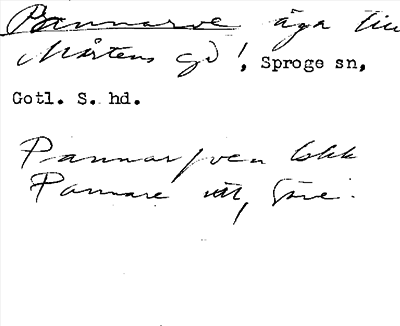 Pannarve äga till
Mårtens gd!, Sproge sn,
Gotl. S. hd.
Pannarfven
Pannare